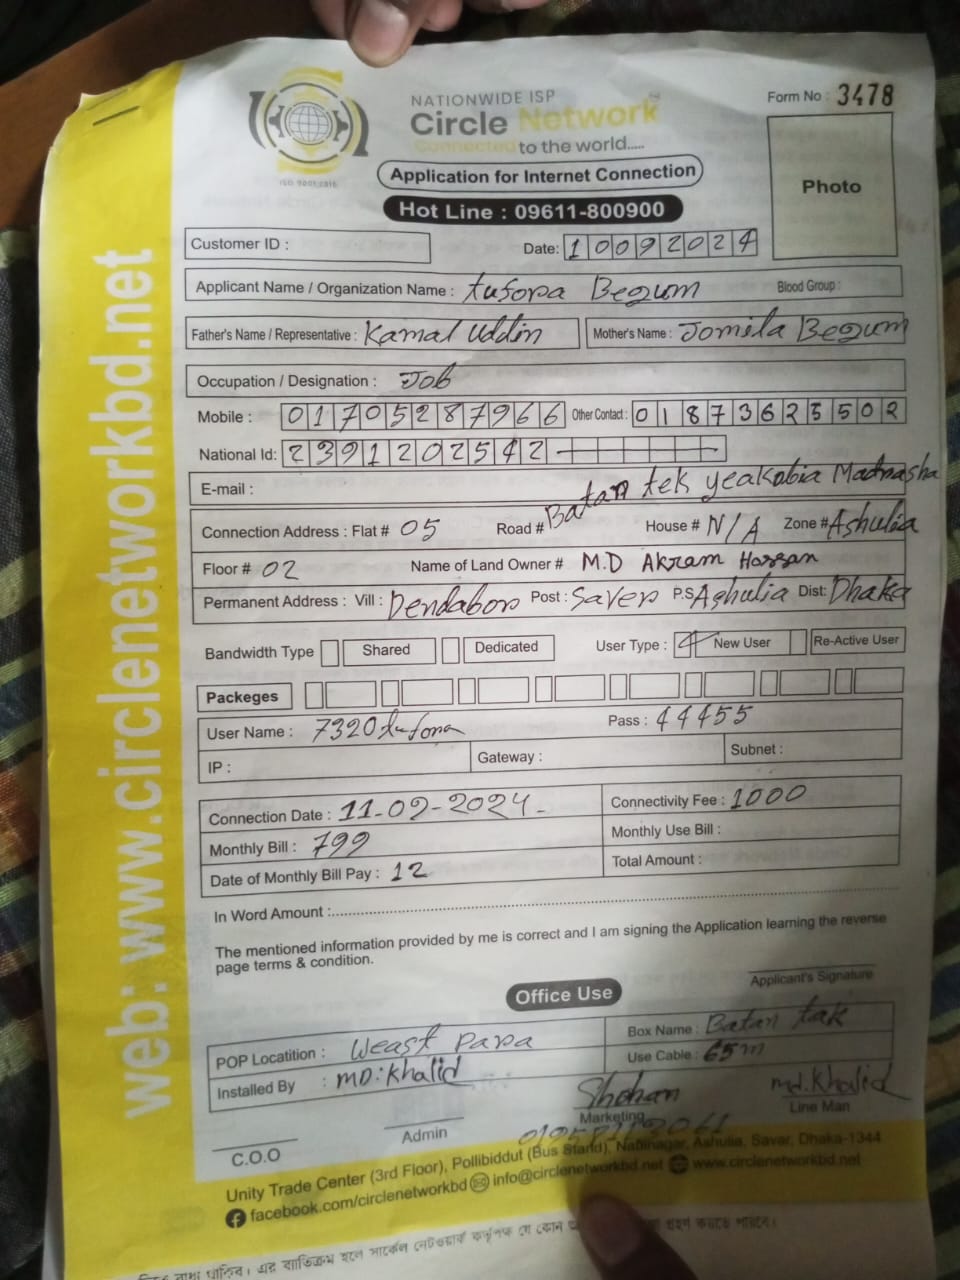 NATIONWIDE ISP
Circle Network
Connected to the world.....
ISO 9001:2015
Form No : 3478
Photo
Application for Internet Connection
Hot Line : 09611-800900
Customer ID :
Date: 10092024
Applicant Name / Organization Name : tufora Begum Blood Group :
Father's Name / Representative : Kamal Uddin Mother's Name : Jomila Begum
Occupation / Designation : Job
Mobile : 01705287966 Other Contact : 01873623502
National Id: 2391202542
E-mail :
Batan tek yeakobia Madrasha
Connection Address : Flat # 05 Road # House # N/A Zone # Ashulia
Floor # 02 Name of Land Owner # M.D Akram Hassan
Permanent Address : Vill : Dendabor Post : Saver P.S Ashulia Dist: Dhaka
Bandwidth Type Shared Dedicated User Type : New User Re-Active User
Packeges
User Name : 7320tufora Pass : 44455
IP : Gateway : Subnet :
Connection Date : 11-09-2024 - Connectivity Fee : 1000
Monthly Bill : 799 Monthly Use Bill :
Date of Monthly Bill Pay : 12 Total Amount :
In Word Amount :
The mentioned information provided by me is correct and I am signing the Application learning the reverse
page terms & condition.
Applicant's Signature
Office Use
POP Locatition : Weast Para Box Name : Batan tak
Installed By : MD:Khalid Use Cable : 65m
Shohan md.Khalid
C.O.O Admin Marketing Line Man
Unity Trade Center (3rd Floor), Pollibiddut (Bus Stand), Nabinagar, Ashulia, Savar, Dhaka-1344
facebook.com/circlenetworkbd info@circlenetworkbd.net www.circlenetworkbd.net
web: www.circlenetworkbd.net
এর ব্যতিক্রম হলে সার্কেল নেটওয়ার্ক কর্তৃপক্ষ যে কোন গ্রহণ করতে পারবে।